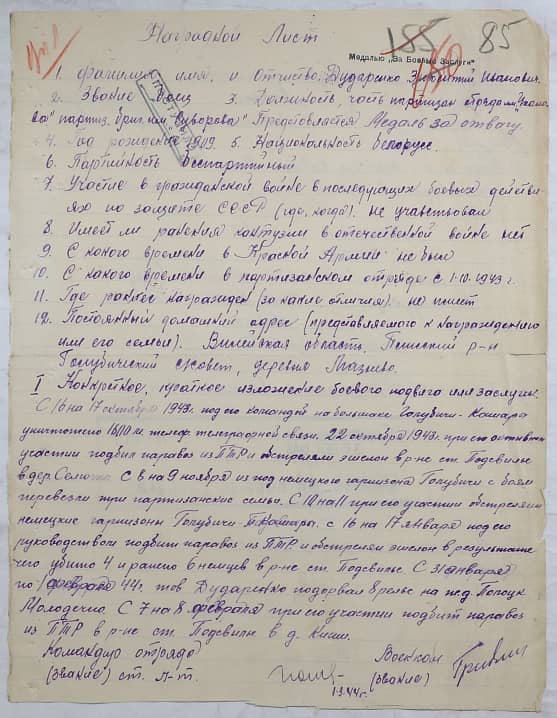 Наградной Лист
155 150 85
Медалью „За Боевые Заслуги"
1. Фамилия, имя, и отчество. Дударенко Иванович.
2. Звание боец 3. Должность, часть партизан отряда
ва" партиз. бриг. им. Суворова" Представляется Медаль за отвагу.
4. Год рождения 1919. 5. Национальность белорусс.
6. Партийность беспартийный
7. Участие в гражданской войне в последующих боевых действи-
ях по защите СССР (где, когда). не участвовал
8. Имеет ли ранения контузии в отечественной войне нет
9. С какого времени в Красной Армии не был
10. С какого времени в партизанском отряде с 1-10-1943 г.
11. Где ранее награжден (за какие отличия). не имеет
12. Постоянный домашний адрес (представляемого к награждению
или его семьи). Вилейская область, р-н
Голубический с/совет, деревня
I Конкретное, краткое изложение боевого подвига или заслуги.
С 16 на 17 октября 1943г. под его командой на большаке Голубичи-Кашара
уничтожено телеф. телеграфной связи. 22 октября 1943г. при его активном
участии подбит паравоз из ПТР и обстрелян эшелон в р-не ст. Подсвилье
в дер. С 8 на 9 ноября из под немецкого гарнизона Голубичи с боем
перевезли три партизанские семьи. С 10 на 11 при его участии обстреляны
немецкие гарнизоны Голубичи с 16 на 17 января под его
руководством подбит паравоз из ПТР и обстрелян эшелон в результате
чего убито 4 и ранено 6 немцев в р-не ст. Подсвилье С 31 января
по 1 февраля 44г. тов Дударенко подорвал 8 рельс на ж.д. Полоцк
Молодечно. С 7 на 8 февраля при его участии подбит паравоз
из ПТР в р-не ст. Подсвилье в д.
Командир отряда Военком
(звание) ст. л-т. 1-3-44г. (звание)